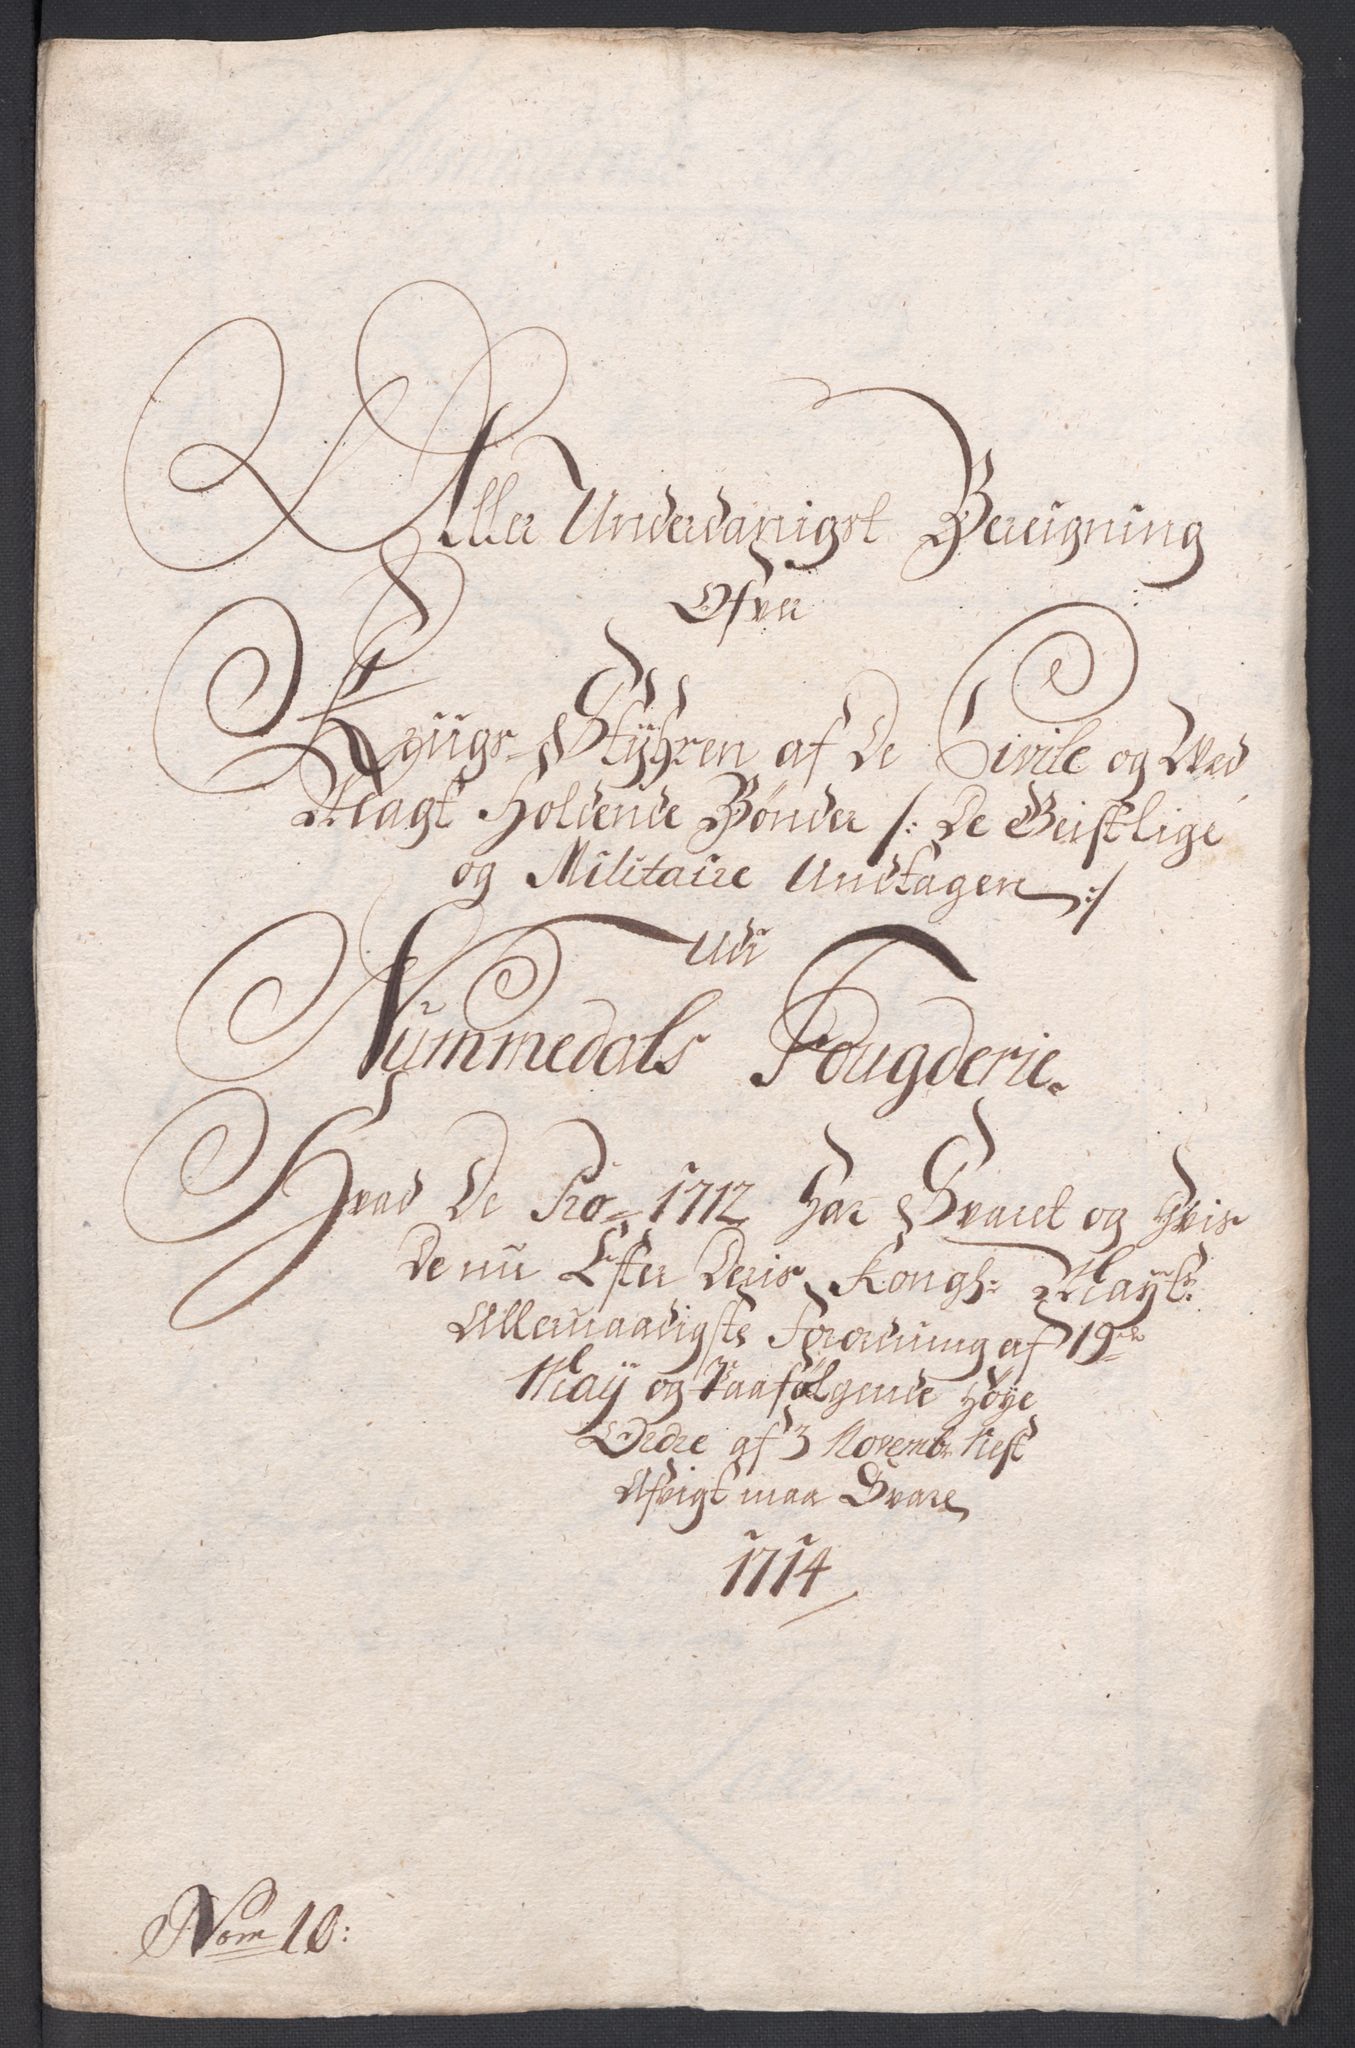 Aller Underdanigst Bereigning
Ofver
Krigs-Styhren af De Civile og Ved
Magt Holdende Bønder /: De Geistlige
og Militaire Undtagen :/
Udi
Nummedals Fougderie.
Hvad De Pro 1712 Har Svaret og Hvis
De nu Efter Deris Kongh: Mayts:
Allernaadigste Forordning af 19de
May og Paafølgende Høye
Ordre af 3 Novembr Nest
Afvigt maa Svare
1714
Nom 10: